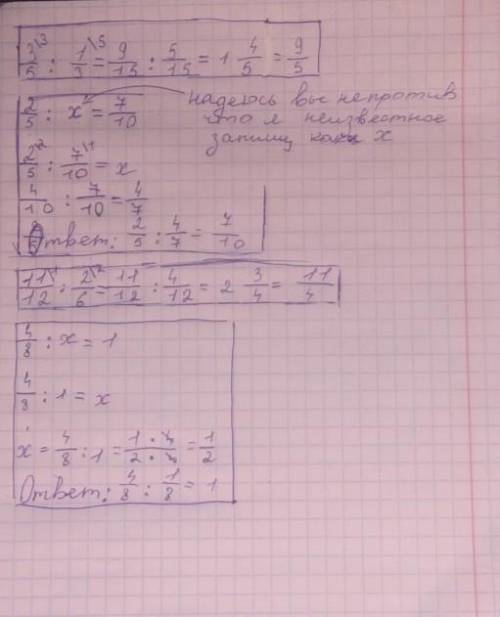 3/5 \3 : 1/3 \5 = 9/15 : 5/15 = 1 4/5 = 9/5
2/5 : x = 7/10 надеюсь вы не против
что я неизвестное
запишу как x
2/5 \2 : 7/10 \1 = x
4/10 : 7/10 = 4/7
Ответ: 2/5 : 4/7 = 7/10
11/12 \1 : 2/6 \2 = 11/12 : 4/12 = 2 3/4 = 11/4
4/8 : x = 1
4/8 : 1 = x
x = 4/8 : 1 = 1 · 4/2 · 4 = 1/2
Ответ: 4/8 : 1/8 = 1